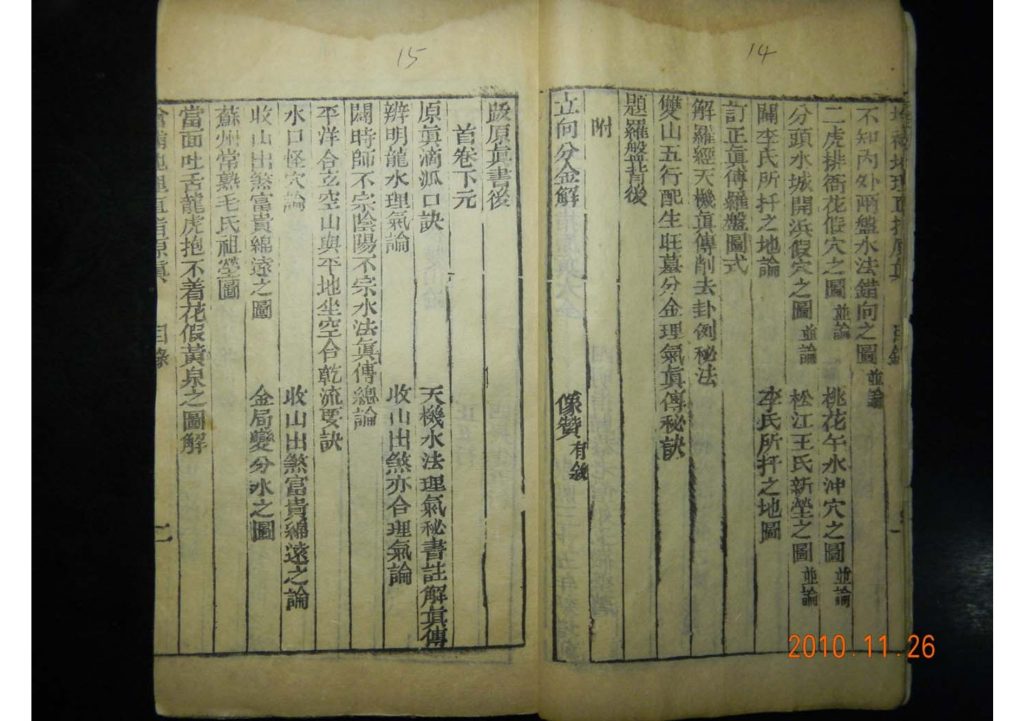 14
不知內外兩盤水法錯向之圖 並論
二虎排衙花假穴之圖 並論 桃花午水沖穴之圖 並論
分頭水城開浜假穴之圖 並論 松江王氏新塋之圖 並論
闢李氏所扦之地論 李氏所扦之地圖
訂正眞傳羅盤圖式
解羅經天機眞傳削去卦例秘法
雙山五行配生旺墓分金理氣眞傳秘訣
題羅盤背後
附
立向分金解 像贊 有敘
15
跋原眞書後
首卷下元
原眞滴派口訣 天機水法理氣秘書註解眞傳
辨明龍水理氣論 收山出煞亦合理氣論
闢時師不宗陰陽不宗水法眞傳總論
平洋合立空山與平地坐空合乾流要訣
水口怪穴論 收山出煞富貴綿遠之論
收山出煞富貴綿遠之圖 金局變分水之圖
蘇州常熟毛氏祖塋圖
當面吐舌龍虎抱不着花假黃泉之圖解
地理直指原眞 目錄 二
2010.11.26